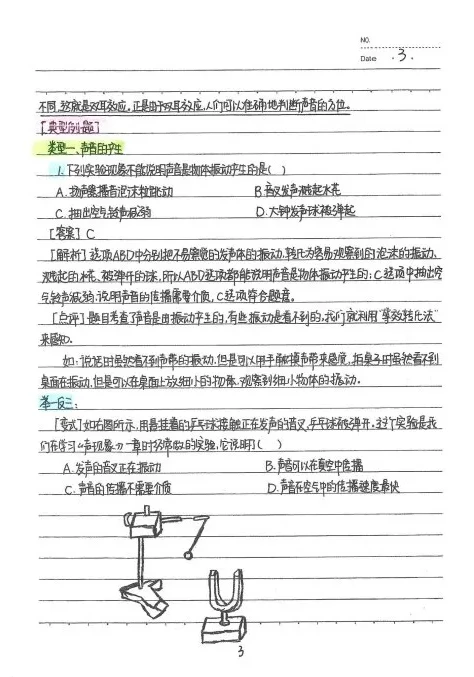 NO.
Date .3.
不同,这就是双耳效应,正是由于双耳效应,人们可以准确地判断声音的方位。
[典型例题]
类型一、声音的产生
1.下列实验现象不能说明声音是物体振动产生的是( )
A.扬声器播音泡沫粒跳动 B.音叉发声溅起水花
C.抽出空气铃声减弱 D.大钟发声球被弹起
[答案] C
[解析]选项ABD中分别把不易察觉的发声体的振动,转化为容易观察到的泡沫的振动、
溅起的水花、被弹开的球,所以ABD选项都能说明声音是物体振动产生的;C选项中抽出空
气铃声减弱,说明声音的传播需要介质,C选项符合题意。
[点评]题目考查了声音是由振动产生的,有些振动是看不到的,我们就利用"等效转化法"
来感知。
如:说话时虽然看不到声带的振动,但是可以用手触摸声带来感觉,拍桌子时虽然看不到
桌面在振动,但是可以在桌面上放细小的物体,观察到细小物体的振动。
举一反三:
[变式]如右图所示,用悬挂着的乒乓球接触正在发声的音叉,乒乓球被弹开。这个实验是我
们在学习《声现象》一章时经常做的实验,它说明了( )
A.发声的音叉正在振动 B.声音可以在真空中传播
C.声音的传播不需要介质 D.声音在空气中的传播速度最快
3